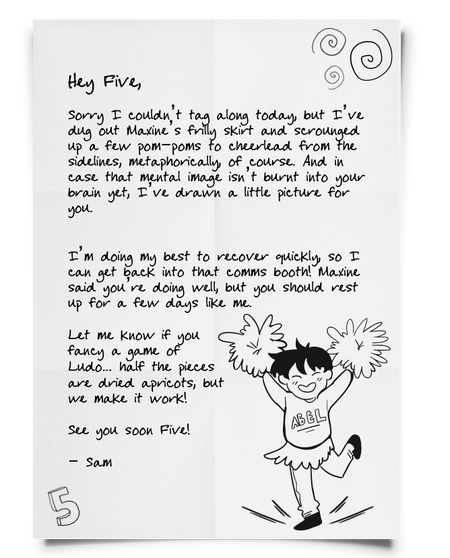 Hey Five,
Sorry I couldn't tag along today, but I've
dug out Maxine's frilly skirt and scrounged
up a few pom-poms to cheerlead from the
sidelines, metaphorically, of course. And in
case that mental image isn't burnt into your
brain yet, I've drawn a little picture for
you.
I'm doing my best to recover quickly, so I
can get back into that comms booth! Maxine
said you're doing well, but you should rest
up for a few days like me.
Let me know if you
fancy a game of
Ludo... half the pieces
are dried apricots, but
we make it work!
See you soon Five!
- Sam
ABEL
5